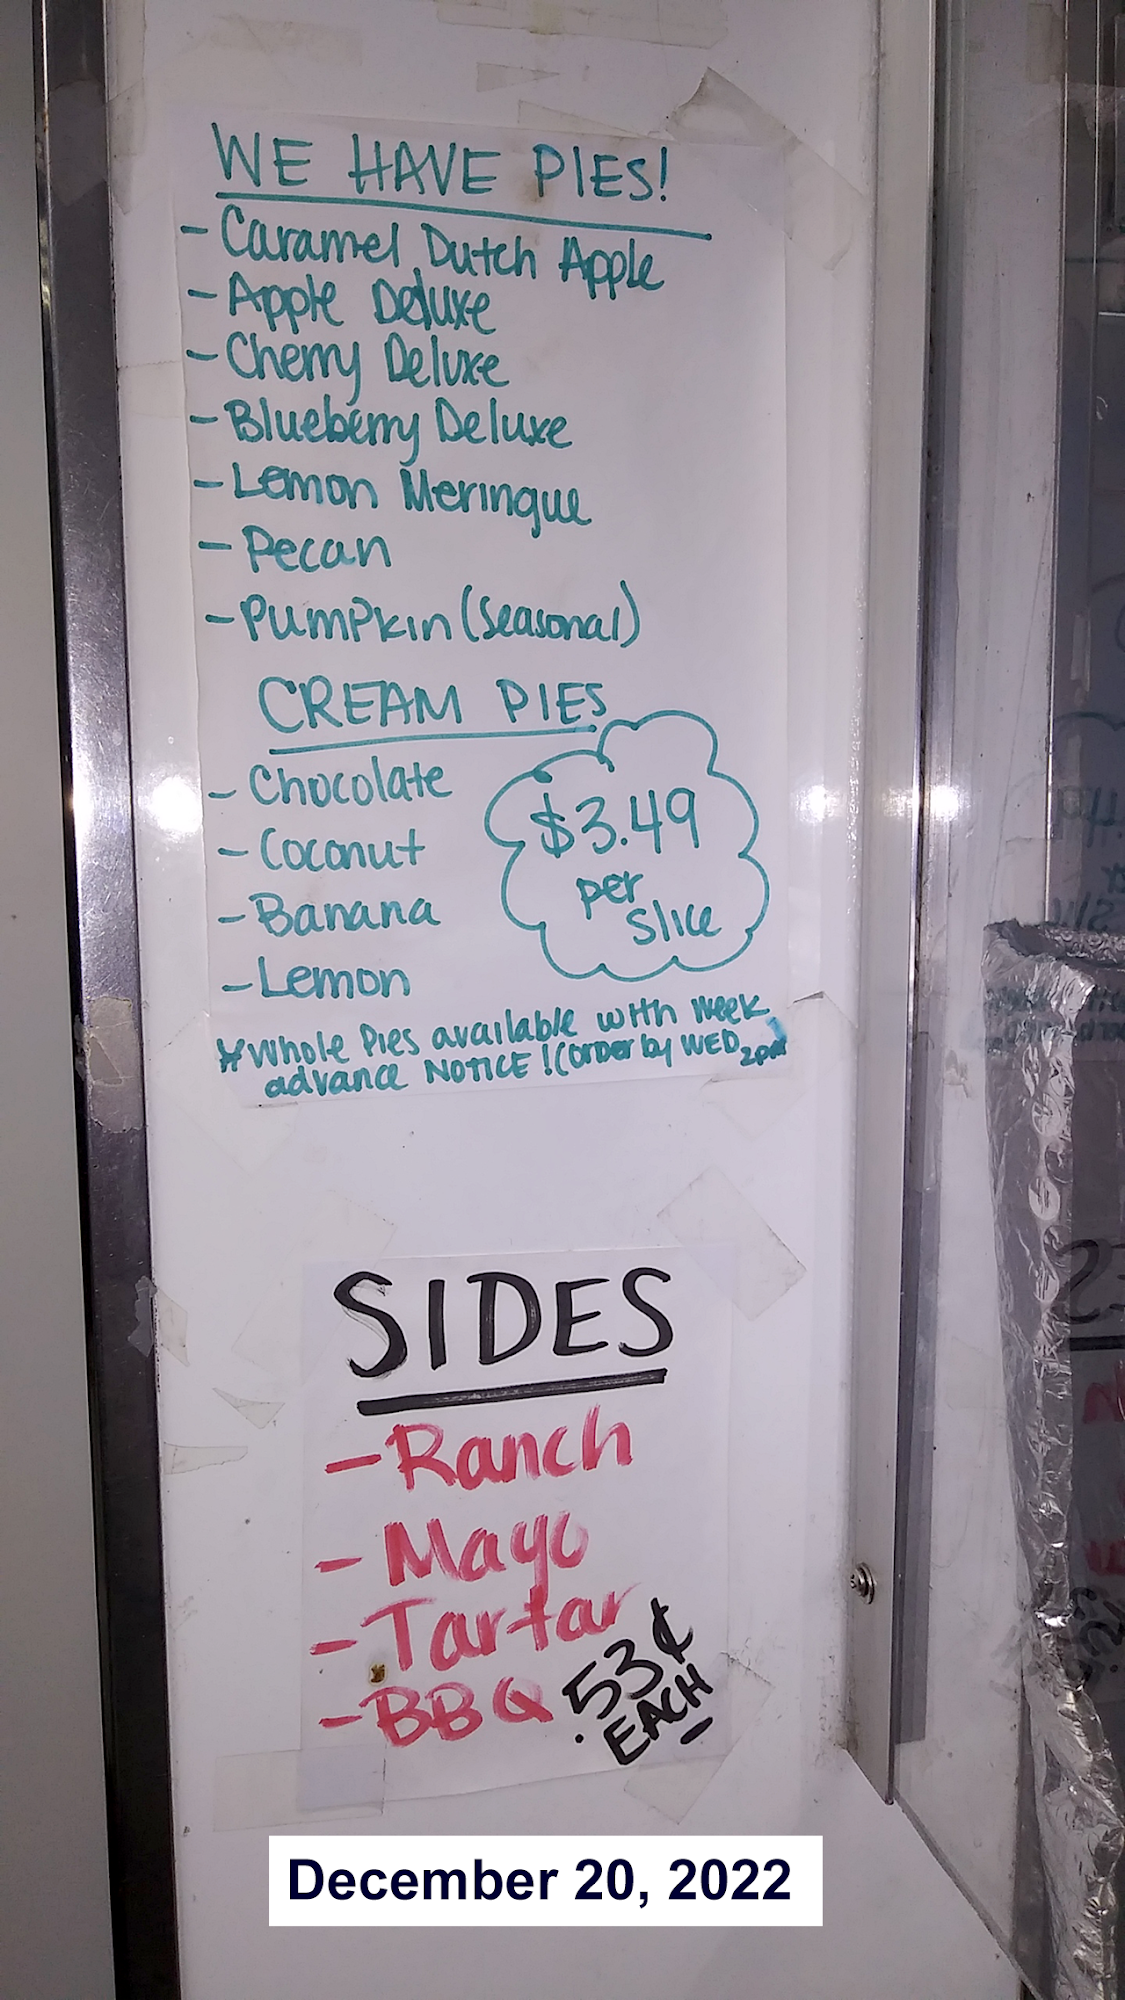 WE HAVE PIES!
- Caramel Dutch Apple
- Apple Deluxe
- Cherry Deluxe
- Blueberry Deluxe
- Lemon Meringue
- Pecan
- PUMPKin (Seasonal)
CREAM PIES
- Chocolate
- Coconut
- Banana
- Lemon
$3.49
per
slice
*Whole Pies available with week
advance NOTICE! (Order by WED. 2pm
SIDES
- Ranch
- Mayo
- Tartar
- BBQ
.53¢
EACH
December 20, 2022